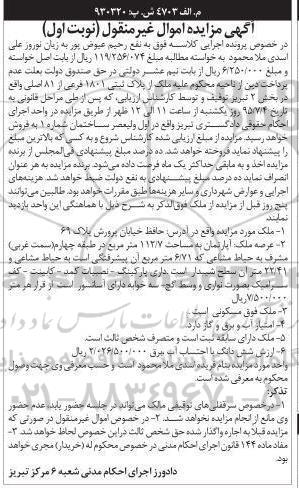 م. الف ۴۷۰۳ ش. پ: ۹۳۰۳۲۰
آگهی مزایده اموال غیرمنقول (نوبت اول)
در خصوص پرونده اجرایی کلاسه فوق به نفع رحیم عیوض پور به زیان نوروز علی
اسدی ملا محمود به خواسته مطالبه مبلغ ۱۱۹/۲۵۶/۰۷۴ ریال از بابت اصل خواسته
و مبلغ ۶/۲۵۰/۰۰۰ ریال از بابت نیم عشر دولتی در حق صندوق دولت بعلت عدم
پرداخت دین از ناحیه محکوم علیه ملک از پلاک ثبتی ۱۸۰۱ فرعی از ۸۱ اصلی واقع
در بخش ۲ تبریز توقیف و توسط کارشناس ارزیابی، که پس از طی مراحل قانونی به
تاریخ ۹۵/۷/۴ روز یکشنبه از ساعت ۱۱ الی ۱۲ ظهر از طریق مزایده در واحد اجرای
احکام حقوقی دادگستری تبریز واقع در اول ولیعصر ساختمان شماره ۱ به فروش
خواهد رسید. مزایده از مبلغ ارزیابی شده کارشناس شروع و به کسی که بالاترین مبلغ
را پیشنهاد نماید فروخته خواهد شد. ده درصد مبلغ پیشنهادی فی‌المجلس از برنده
مزایده اخذ و به مابقی حداکثر یک ماه فرصت داده می‌شود. برنده مزایده به هر عنوان
انصراف نماید ده درصد مبلغ پیشنهادی به نفع دولت ضبط خواهد شد. هزینه‌های
اجرایی و عوارض شهرداری و سایر هزینه‌ها طبق مقررات خواهد بود. طالبین می‌توانند
پنج روز قبل از مزایده از ملک فوق‌الذکر به شرح ذیل با هماهنگی این واحد بازدید
نمایند.
۱- ملک مورد مزایده واقع در آدرس: حافظ خیابان پرورش پلاک ۶۹
۲- عرصه ملک: آپارتمان به مساحت ۱۱۲/۷ متر مربع در طبقه چهارم (سمت غربی)
مشرف به حیاط مشاعی که ۶/۷۱ متر مربع آن پیشرفتگی است به حیاط مشاعی و
۲۲/۴۱ متر آن سطح شیبدار است. دارای پارکینگ - نصبیات کمد - کابینت - کف
سرامیک بصورت نواری و وسط گچ، سه خوابه دارای آسانسور است. از قرار هر متر
۷/۵۰۰/۰۰۰ ریال
۳- ملک فوق مسکونی است.
۴- امتیاز آب و برق و گاز دارد.
۵- ملک دارای سابقه ثبت است و متصرف شخص ثالث است.
۶- ارزش شش دانگ با احتساب آب برق ۲/۰۲۶/۵۰۰/۰۰۰ ریال
واحد مورد مزایده بنام فریده اسدی ملا محمود است و حسب معرفی وی جهت وصول
محکوم به معرفی شده است.
تذکر:
۱- درخصوص سرقفلی‌های توقیفی مالک می‌تواند در جلسه حضور یابد، عدم حضور
وی مانع از انجام مزایده نخواهد شد. ۲- در خصوص اموال غیرمنقول در صورتی که
مزایده قبلا به اجاره واگذار شده حق شخص ثالث در این خصوص لحاظ خواهد شد. ۳-
مفاد ماده ۱۴۴ قانون اجرای احکام مدنی در خصوص محکوم له (خریدار) مجری خواهد
بود.
دادورز اجرای احکام مدنی شعبه ۶ مرکز تبریز